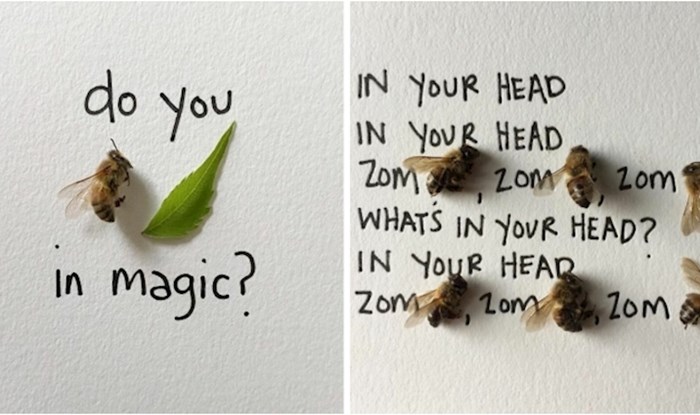 do you
in magic?
IN YOUR HEAD
IN YOUR HEAD
ZOM , ZOM , ZOM
WHAT'S IN YOUR HEAD?
IN YOUR HEAD
ZOM , ZOM , ZOM